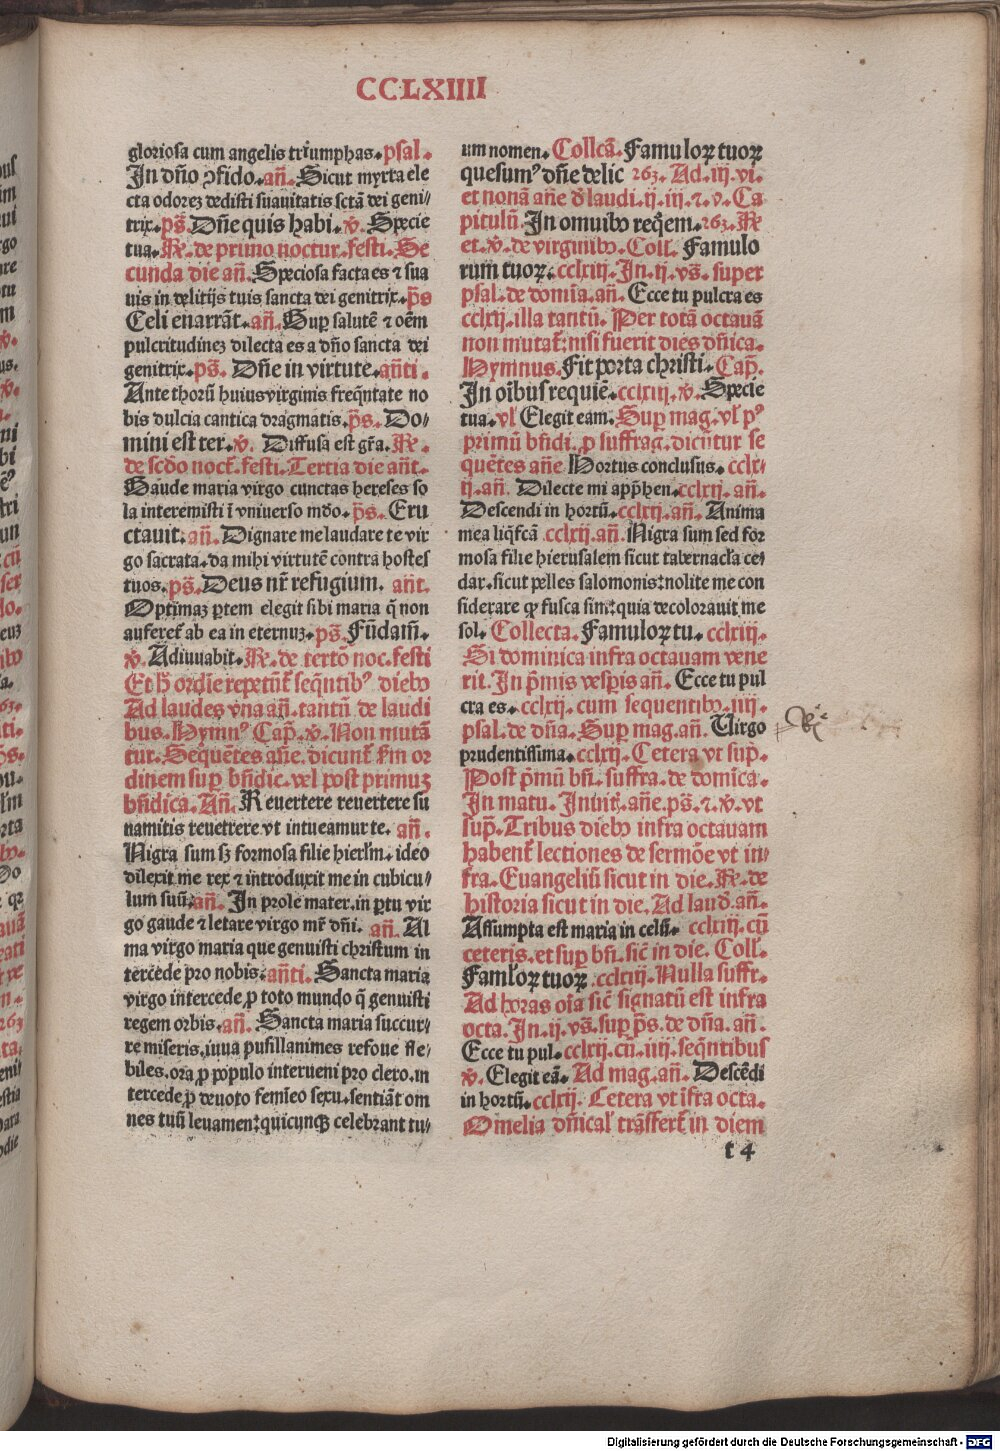 CCLXIIII
gloriosa cum angelis triumphas. psal.
In dño ꝯfido. añ. Sicut myrta ele
cta odorez dedisti suauitatis sctā dei geni/
trix. ps̄. Dñe quis habi. v̄. Specie
tua. R̄. de primo noctur. festi. Se
cunda die añ. Speciosa facta es ⁊ sua
uis in delitijs tuis sancta dei genitrix. p̄s
Celi enarrāt. añ. Sup salutē ⁊ oēm
pulcritudinez dilecta es a dño sancta dei
genitrix. ps̄. Dñe in virtute. añti.
Ante thorū huius virginis freq̄ntate no
bis dulcia cantica dragmatis. p̄s. Do/
mini est ter. v̄. Diffusa est gr̄a. R̄.
de scd̄o noct̄. festi. Tertia die añt.
Gaude maria virgo cunctas hereses so
la interemisti ī vniuerso mōo. p̄s. Eru
ctauit. añ. Dignare me laudare te vir
go sacrata. da mihi virtutē contra hostes
tuos. ps̄. Deus nr̄ refugium. añt.
Optimaz ꝑtem elegit sibi maria q̄ non
auferet̄ ab ea in eternuz. ps̄. Fūdam̄.
v̄. Adiuuabit. R̄. de tertō noc. festi
Et h̄ ordīe repetūt̄ seq̄ntibꝰ dieb9
Ad laudes vna añ. tantū de laudi
bus. Hymnꝰ Cap̄. v̄. Non mutā
tur. Sequētes añe. dicunt̄ ẜm or
dinem sup bn̄dic. vel post primuz
bn̄dica. Añ. Reuertere reuertere su
namitis reuetrere vt intueamur te. añ.
Nigra sum sꝫ formosa filie hierl̄m. ideo
dilexit me rex ⁊ introduxit me in cubicu/
lum suū. añ. In prole mater. in ꝑtu vir
go gaude ⁊ letare virgo mr̄ dn̄i. añ. Al
ma virgo maria que genuisti christum in
tercede pro nobis. añti. Sancta maria
virgo intercede ꝓ toto mundo q̄ genuisti
regem orbis. añ. Sancta maria succur/
re miseris. iuua pusillanimes refoue fle/
biles. ora ꝓ populo interueni pro clero. in
tercede ꝓ deuoto femīeo sexu. sentiāt om
nes tuū leuamen: quicunqꝫ celebrant tu/
um nomen. Collcā. Famuloꝝ tuoꝝ
quesumꝰ dñe delic 263. Ad. iij. vi.
et nonā añe d̄ laudi. ij. iii. ⁊. v. Ca
pitulū. In omuib9 req̄em. 263. R̄
et. v̄. de virginib9. Coll̄. Famulo
rum tuoꝝ. cclxiij. In. ij. vs̄. super
psal. de domīa. añ. Ecce tu pulcra es
cclxij. illa tantū. Per totā octauā
non mutat̄: nisi fuerit dies dñica.
Hymnus. Fit porta christi. Cap̄.
In oībus requiē. cclxiii. v̄. Specie
tua. vl̄ Elegit eam. Sup mag. vl̄ pꝰ
primū bn̄di. ꝓ suffrag. dicūtur se
quētes añe Hortus conclusus. cclx/
ij. añ. Dilecte mi app̄hen. cclxij. añ.
Descendi in hortū. cclxij. añ. Anima
mea liq̄fcā cclxij. añ. Nigra sum sed for
mosa filie hierusalem sicut tabernacl̄a ce/
dar. sicut pelles salomonis: nolite me con
siderare ꝙ fusca sim: quia decolorauit me
sol. Collecta. Famuloꝝ tu. cclxiij.
Si dominica infra octauam vene
rit. In p̄mis vesp̄is añ. Ecce tu pul
cra es. cclxij. cum sequentib9. iiij.
psal. de dñā. Sup mag. añ. Virgo
prudentissima. cclxij. Cetera vt sup̄.
Post p̄mū bn̄. suffra. de domīca.
In matu. Inuit̄. añe. ps̄. ⁊. v̄. vt
sup̄. Tribus dieb9 infra octauam
habent̄ lectiones de sermōe vt in/
fra. Euangeliū sicut in die. R̄. de
historia sicut in die. Ad laud̄. añ.
Assumpta est maria in celū. cclxiij. cū
ceteris. et sup bn̄. sic̄ in die. Coll̄.
Faml̄oꝝ tuoꝝ. cclxiij. Nulla suffr̄.
Ad horas oīa sic̄ signatū est infra
octa. In. ij. vs̄. sup p̄s. de dn̄a. añ.
Ecce tu pul. cclxij. cū. iiij. seq̄ntibus
v̄. Elegit eā. Ad mag. añ. Descēdi
in hortū. cclxij. Cetera vt īfra octa.
Omelia dn̄ical̄ trāsfert̄ in diem
t 4
Digitalisierung gefördert durch die Deutsche Forschungsgemeinschaft - DFG